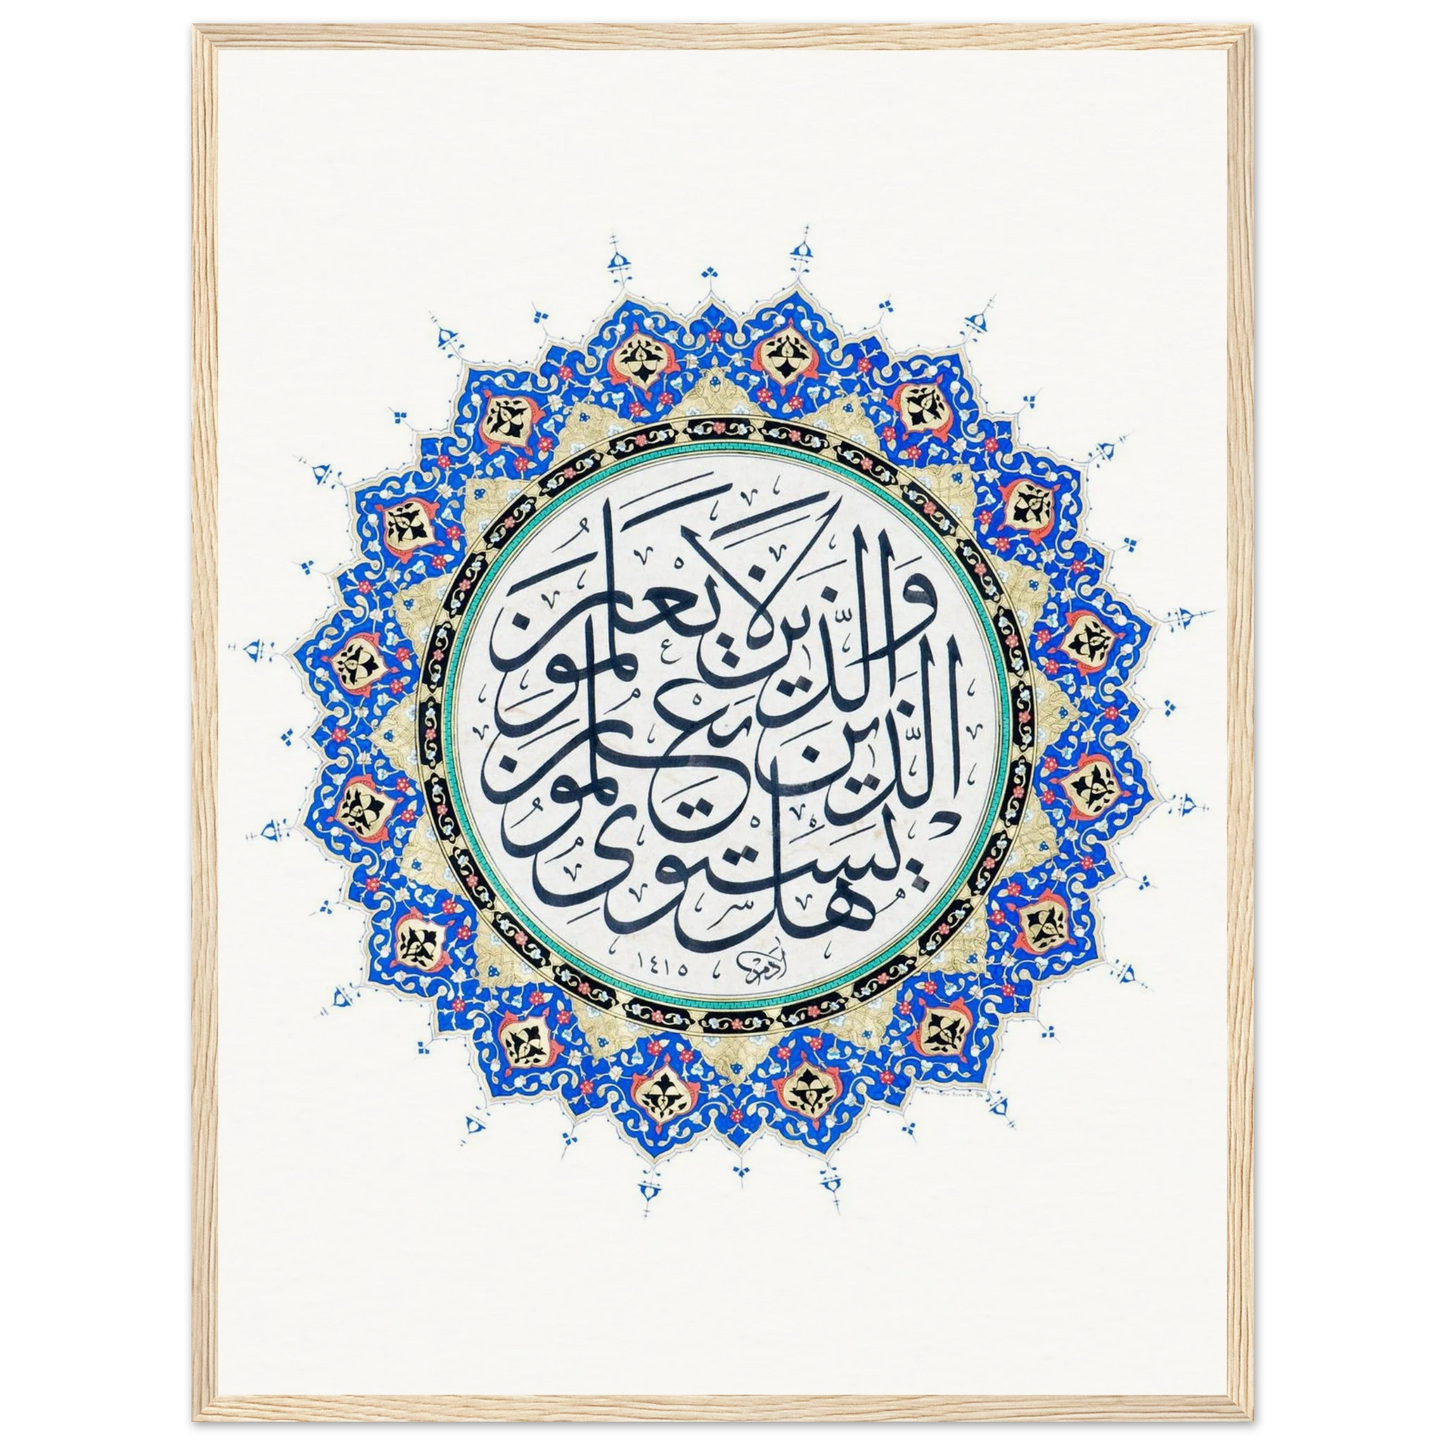 هل يستوي
الذين يعلمون
والذين لا يعلمون
١٤١٥